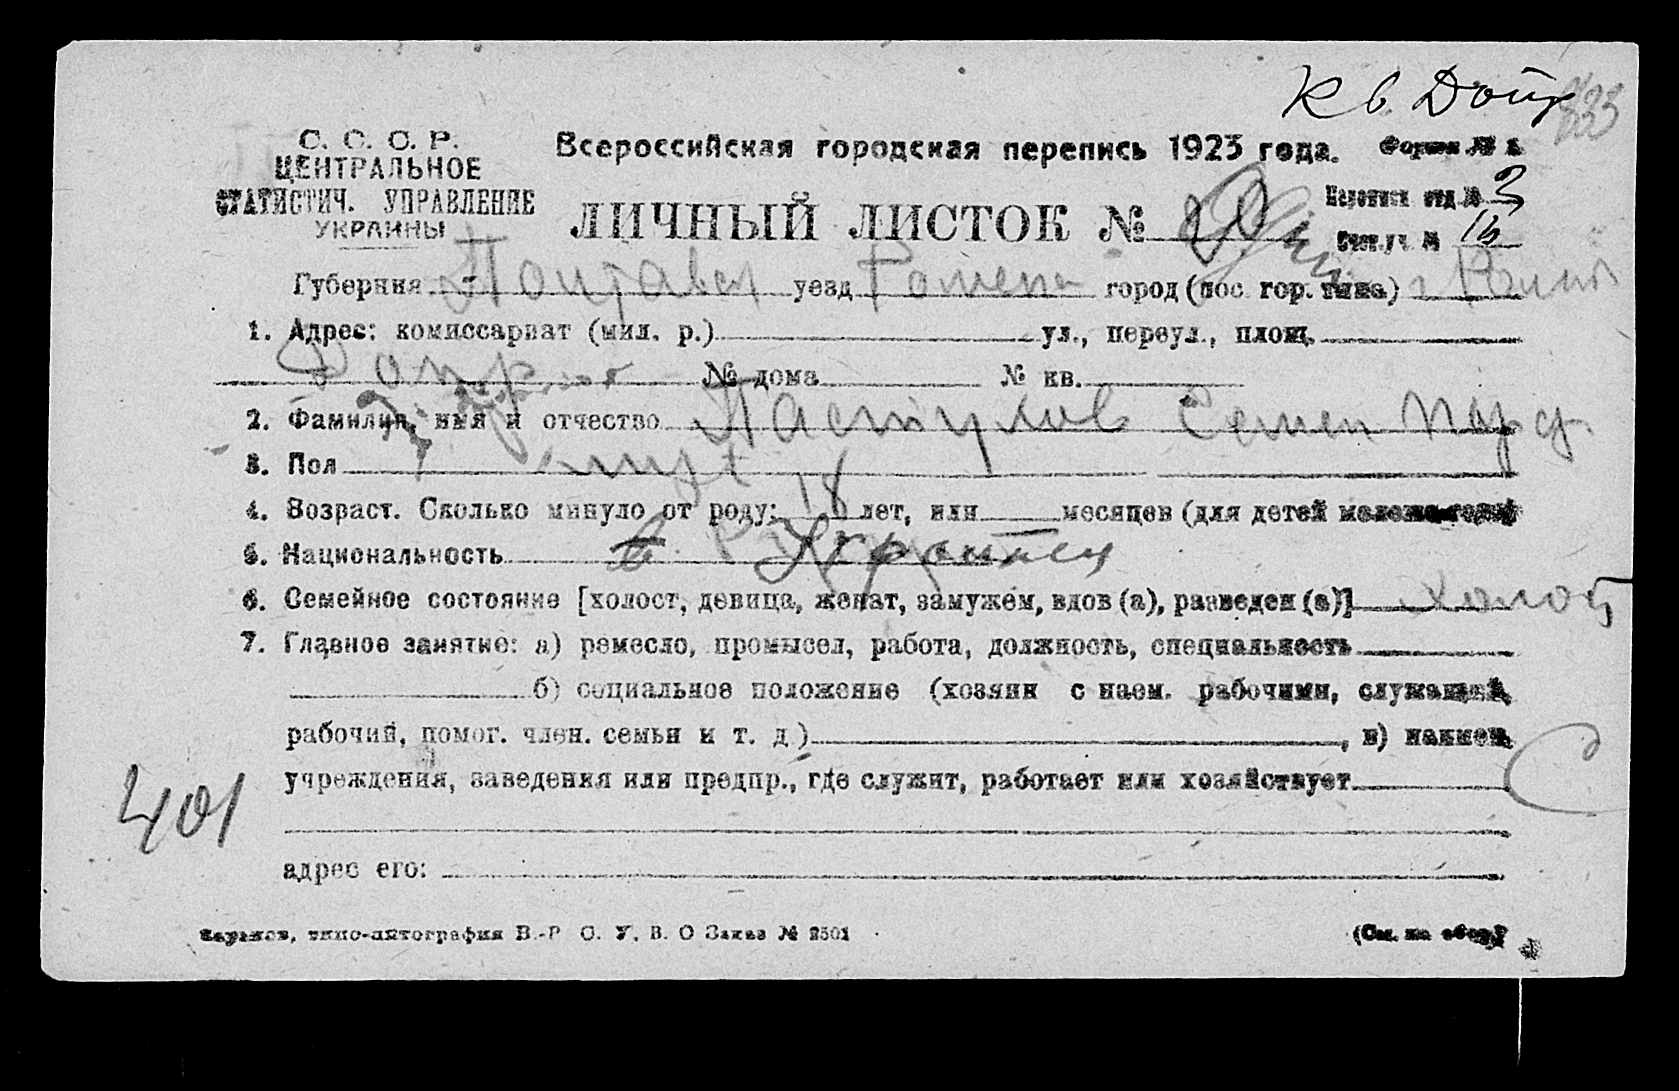 К в. Допр
С. С. С. Р.
ЦЕНТРАЛЬНОЕ
СТАТИСТИЧ. УПРАВЛЕНИЕ
УКРАИНЫ
Всероссийская городская перепись 1923 года. Форма № 1.
ЛИЧНЫЙ ЛИСТОК №
Переписн. отд. № 3
Счет. уч. № 16
Губерния Полтавск уезд Ромен город (пос. гор. типа) г Ромны
1. Адрес: комиссариат (мил. р.) ул., переул., площ.
Допр № дома № кв.
2. Фамилия, имя и отчество Пастухов Семен
3. Пол муж
4. Возраст. Сколько минуло от роду: 18 лет, или месяцев (для детей
5. Национальность Украинец
6. Семейное состояние [холост, девица, женат, замужем, вдов (а), разведен (а)] холост
7. Главное занятие: а) ремесло, промысел, работа, должность, специальность
б) социальное положение (хозяин с наем. рабочими, служащий,
рабочий, помог. член. семьи и т. д.) , в) наимен.
учреждения, заведения или предпр., где служит, работает или хозяйствует
401
адрес его:
Харьков, типо-литография В.-Р. С. У. В. О Заказ № 2501
(См. на обор.)